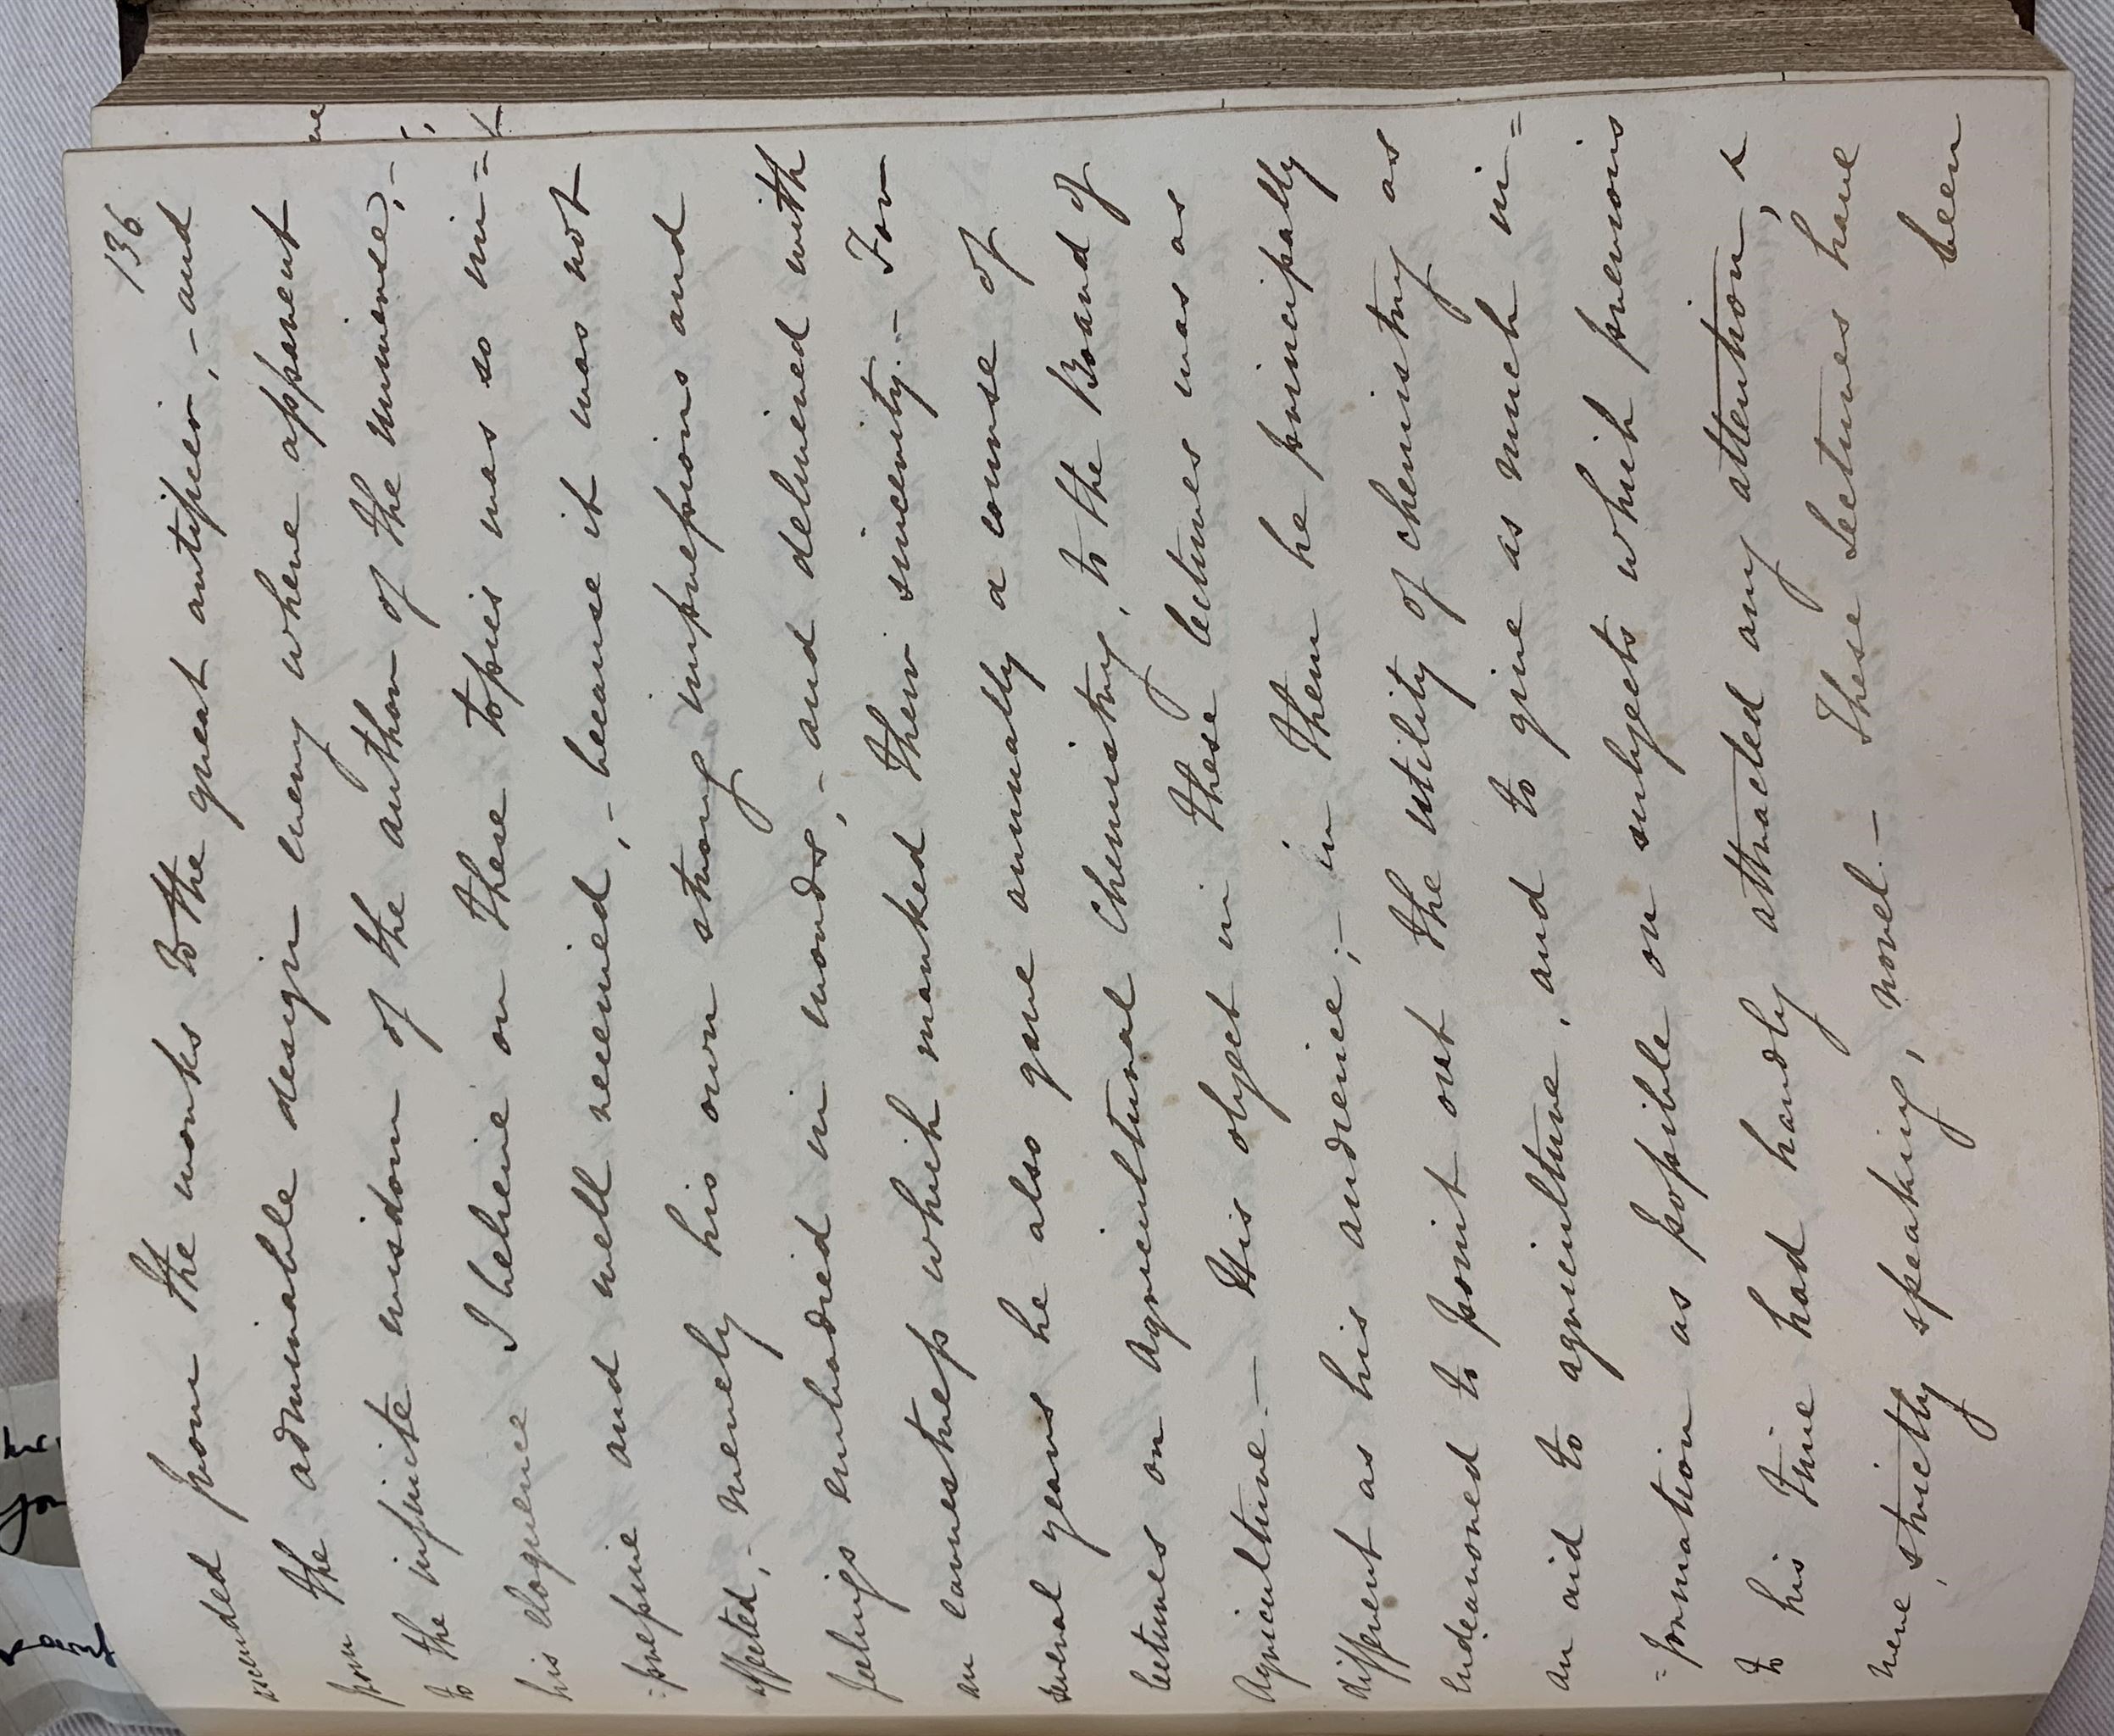 136
ascended from the works to the great artificer, - and
from the admirable design every where apparent
to the infinite wisdom of the author of the universe; -
his eloquence I believe on these topics was so im=
=pressive and well received, - because it was not
affected, - merely his own strong impressions and
feelings embodied in words, - and delivered with
an earnestness which marked their sincerity. - For
several years he also gave annually a course of
lectures on Agricultural Chemistry, to the Board of
Agriculture. - His object in these lectures was as
different as his audience; - in them he principally
endeavored to point out the utility of chemistry as
an aid to agriculture, and to give as much in=
=formation as possible on subjects which previous
to his time had hardly attracted any attention, &
were, strictly speaking, novel. - These Lectures have
been